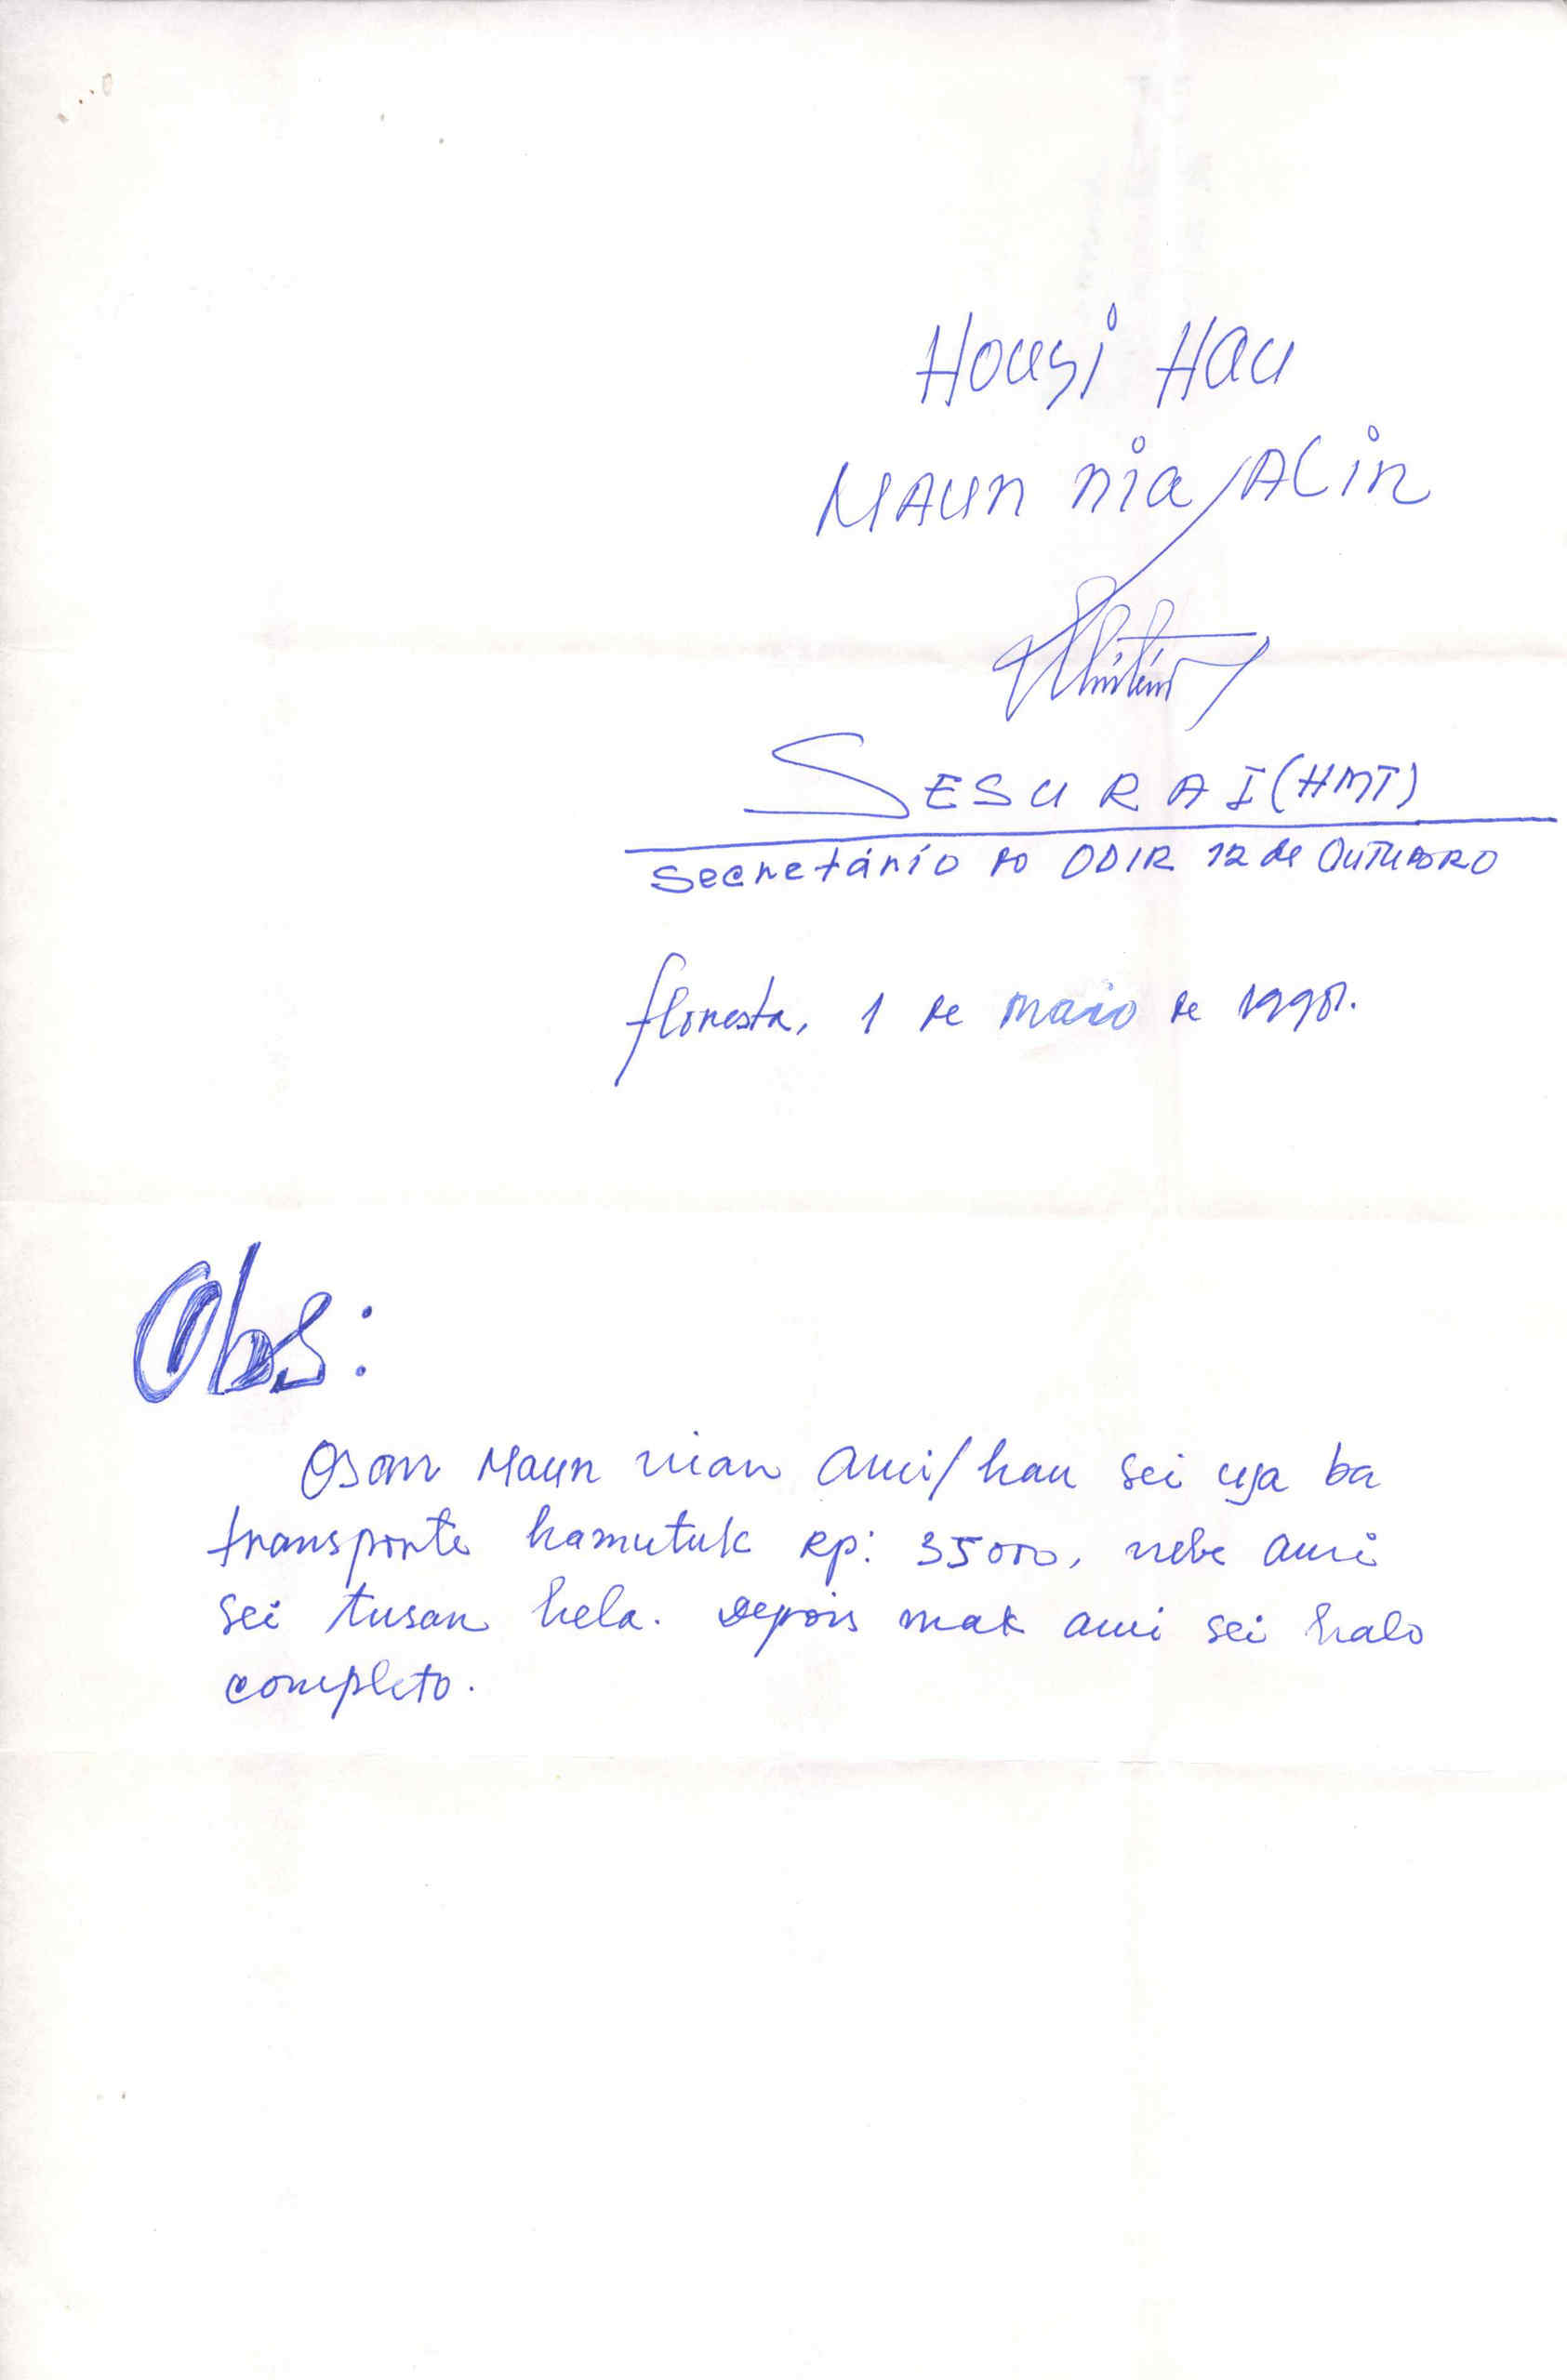 Housi Hau
Maun nia Alin
SESURAI (HMT)
Secretário do ODIR 12 de OUTUBRO
floresta, 1 de maio de 1998.
Obs:
Osan Maun nian Ami/hau sei uja ba
transporte hamutuk Rp: 35000, nebe ami
sei tusan hela. Depois mak ami sei halo
completo.